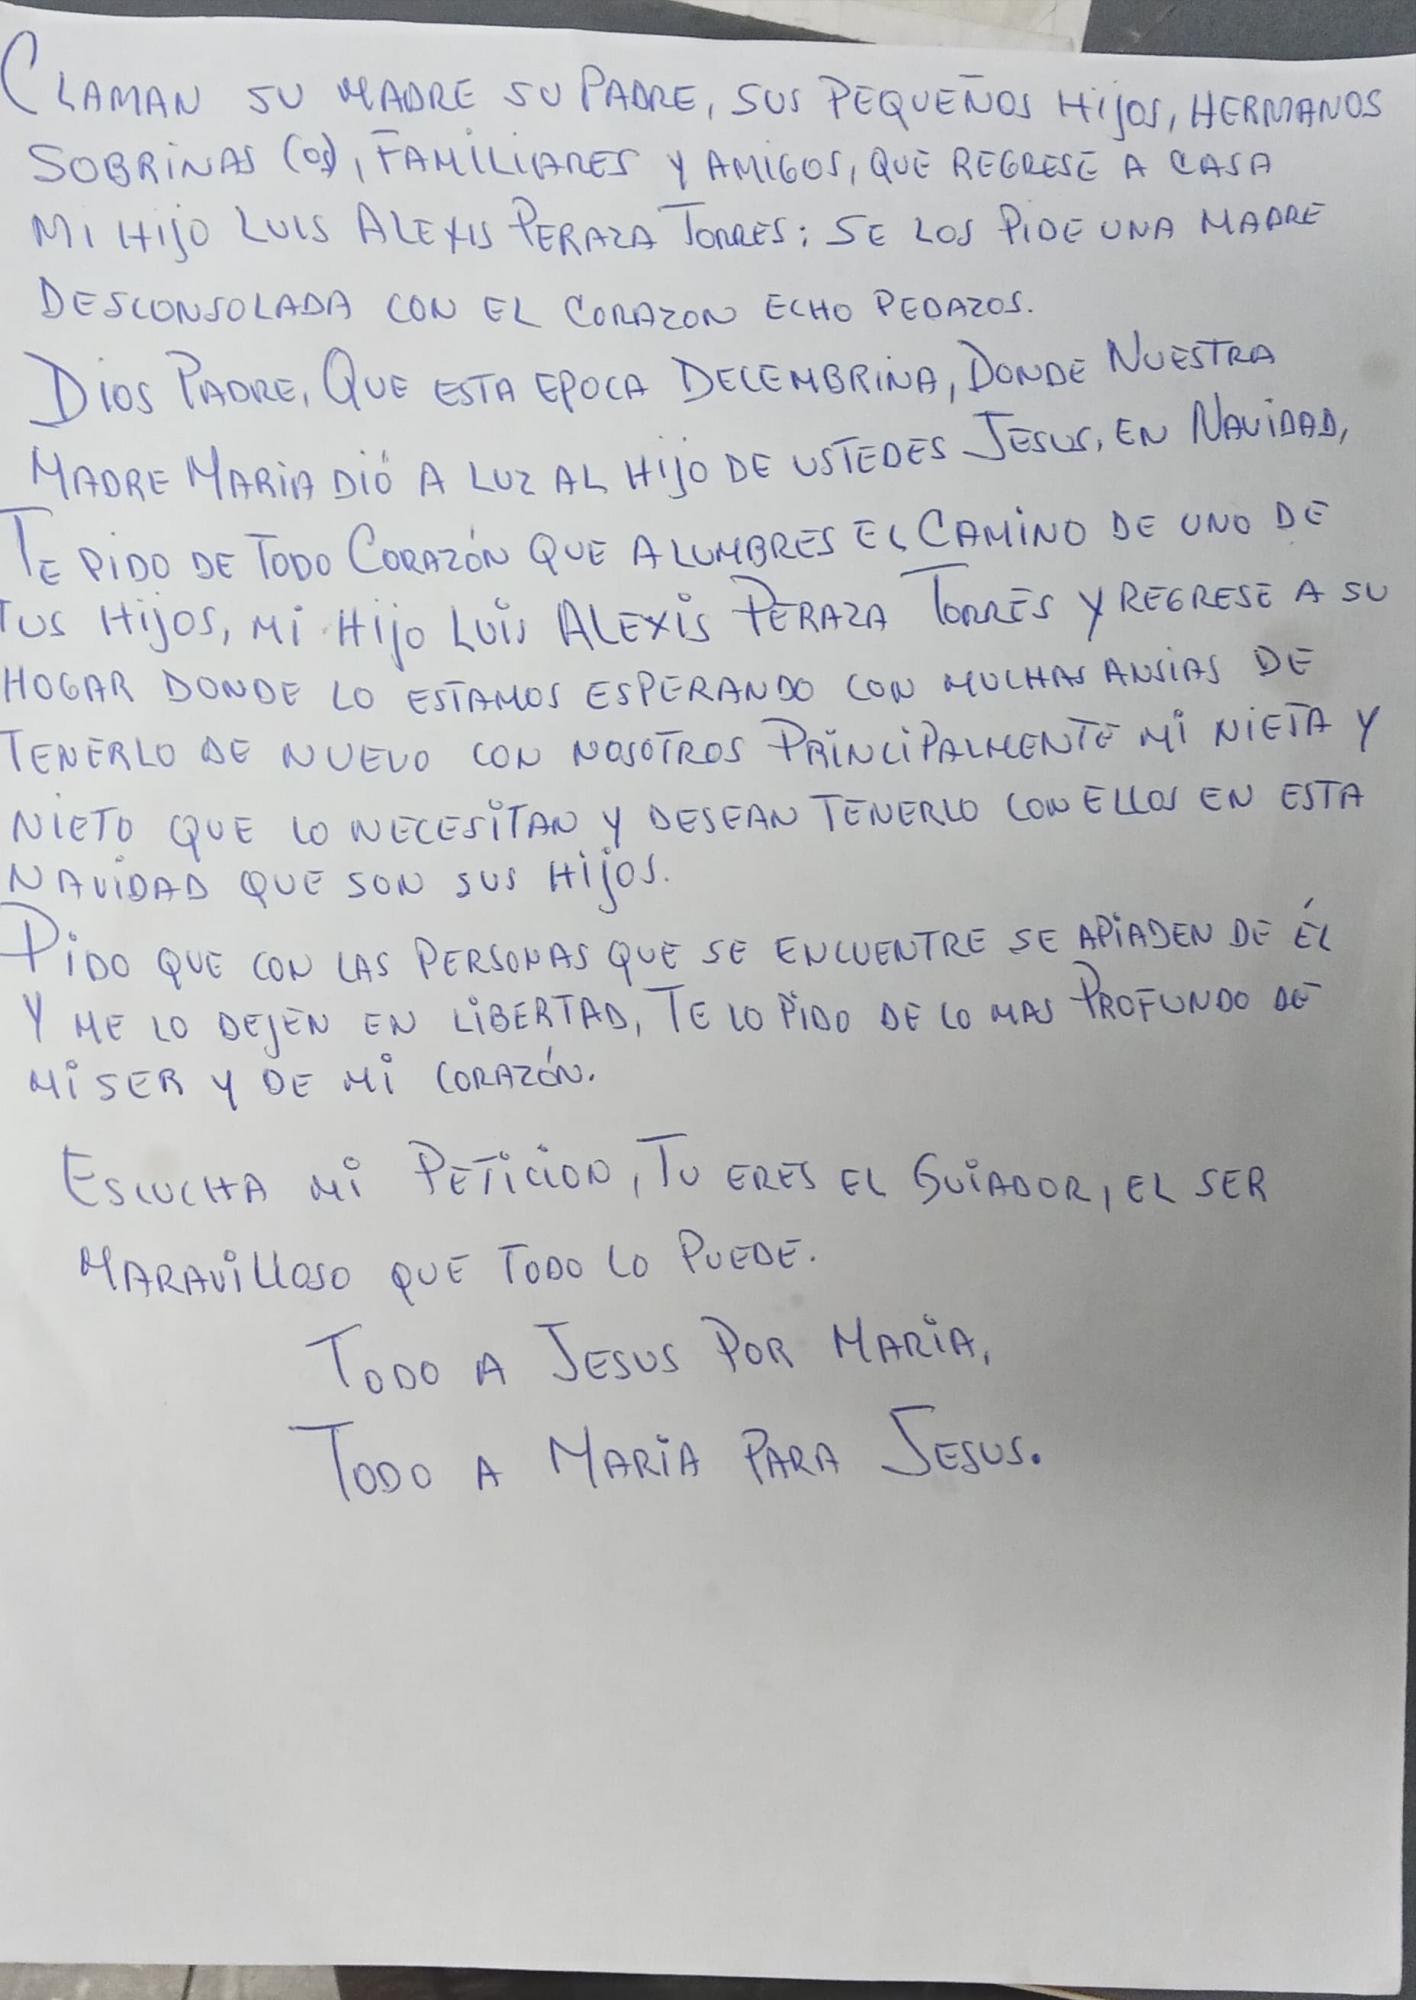 CLAMAN SU MADRE SU PADRE, SUS PEQUEÑOS HIJOS, HERMANOS
SOBRINAS (OS), FAMILIARES Y AMIGOS, QUE REGRESE A CASA
MI HIJO LUIS ALEXIS PERAZA TORRES; SE LOS PIDE UNA MADRE
DESCONSOLADA CON EL CORAZON ECHO PEDAZOS.
DIOS PADRE, QUE ESTA EPOCA DECEMBRINA, DONDE NUESTRA
MADRE MARIA DIÓ A LUZ AL HIJO DE USTEDES JESUS, EN NAVIDAD,
TE PIDO DE TODO CORAZÓN QUE ALUMBRES EL CAMINO DE UNO DE
TUS HIJOS, MI HIJO LUIS ALEXIS PERAZA TORRES Y REGRESE A SU
HOGAR DONDE LO ESTAMOS ESPERANDO CON MUCHAS ANSIAS DE
TENERLO DE NUEVO CON NOSOTROS PRINCIPALMENTE MI NIETA Y
NIETO QUE LO NECESITAN Y DESEAN TENERLO CON ELLOS EN ESTA
NAVIDAD QUE SON SUS HIJOS.
PIDO QUE CON LAS PERSONAS QUE SE ENCUENTRE SE APIADEN DE ÉL
Y ME LO DEJEN EN LIBERTAD, TE LO PIDO DE LO MAS PROFUNDO DE
MI SER Y DE MI CORAZÓN.
ESCUCHA MI PETICION, TU ERES EL GUIADOR, EL SER
MARAVILLOSO QUE TODO LO PUEDE.
TODO A JESUS POR MARIA,
TODO A MARIA PARA JESUS.